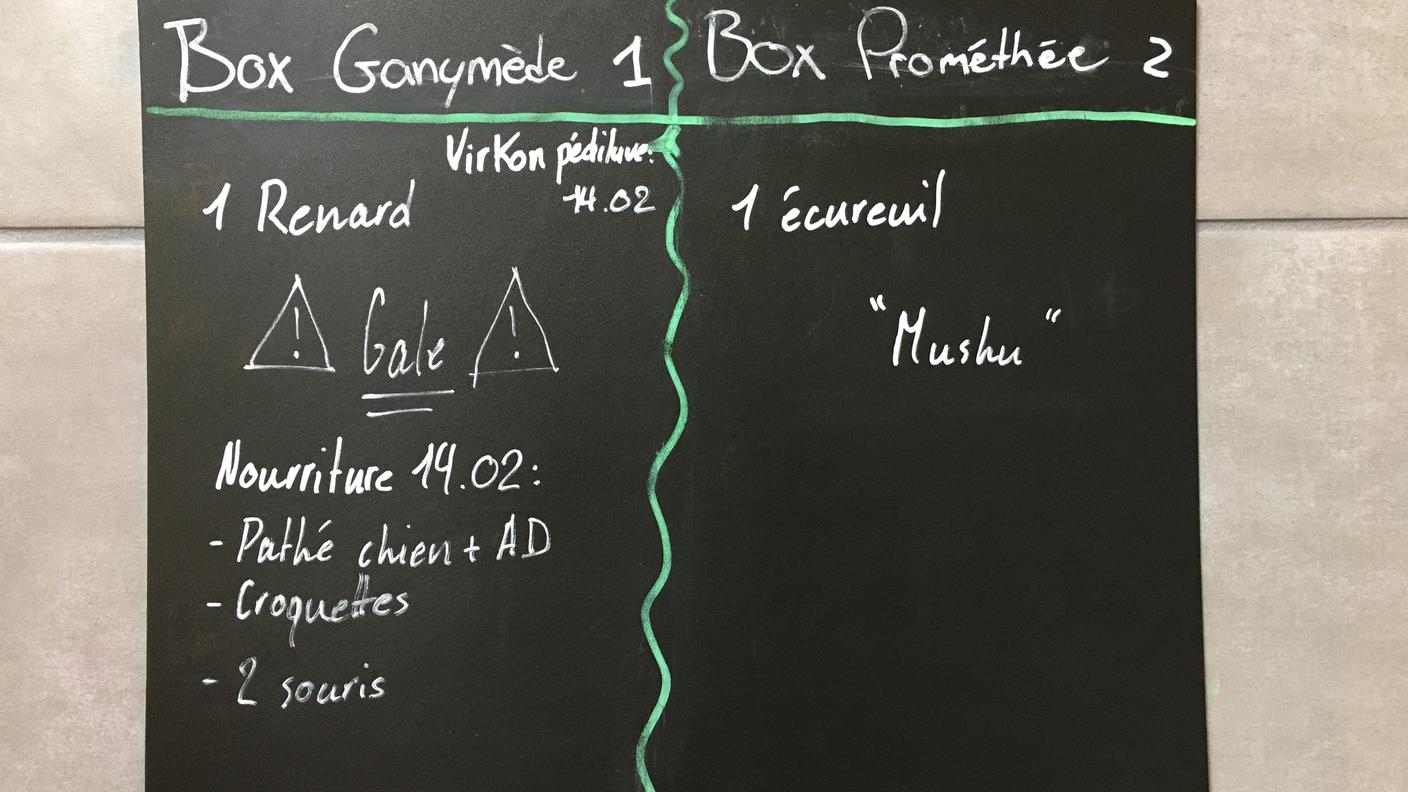 Box Ganymède 1
Virkon pédiluve:
14.02
1 Renard
! Gale !
Nourriture 14.02:
- Pathé chien + AD
- Croquettes
- 2 souris
Box Prométhée 2
1 écureuil
"Mushu"